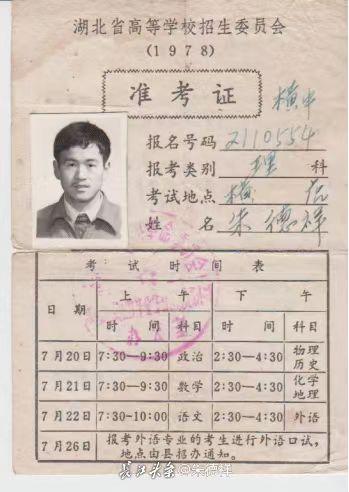 湖北省高等学校招生委员会
(1978)
准考证
横中
报名号码 2110554
报考类别 理 科
考试地点 横 店
姓名 朱德祥
考试时间表
日期 上午 下午
时间 科目 时间 科目
7月20日 7:30-9:30 政治 2:30-4:30 物理 历史
7月21日 7:30-9:30 数学 2:30-4:30 化学 地理
7月22日 7:30-10:00 语文 2:30-4:30 外语
7月26日 报考外语专业的考生进行外语口试,
地点由县招办通知。
长江头条 @朱德祥